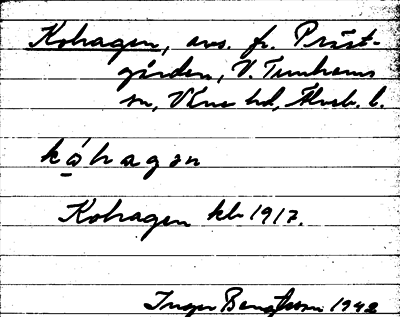 Kohagen, avs. fr. Präst-
gården, V. Tunhems
sn, Väne hd, Älvsb. l.
kóhagən
Kohagen kb 1917.
Inger Bengtsson 1942